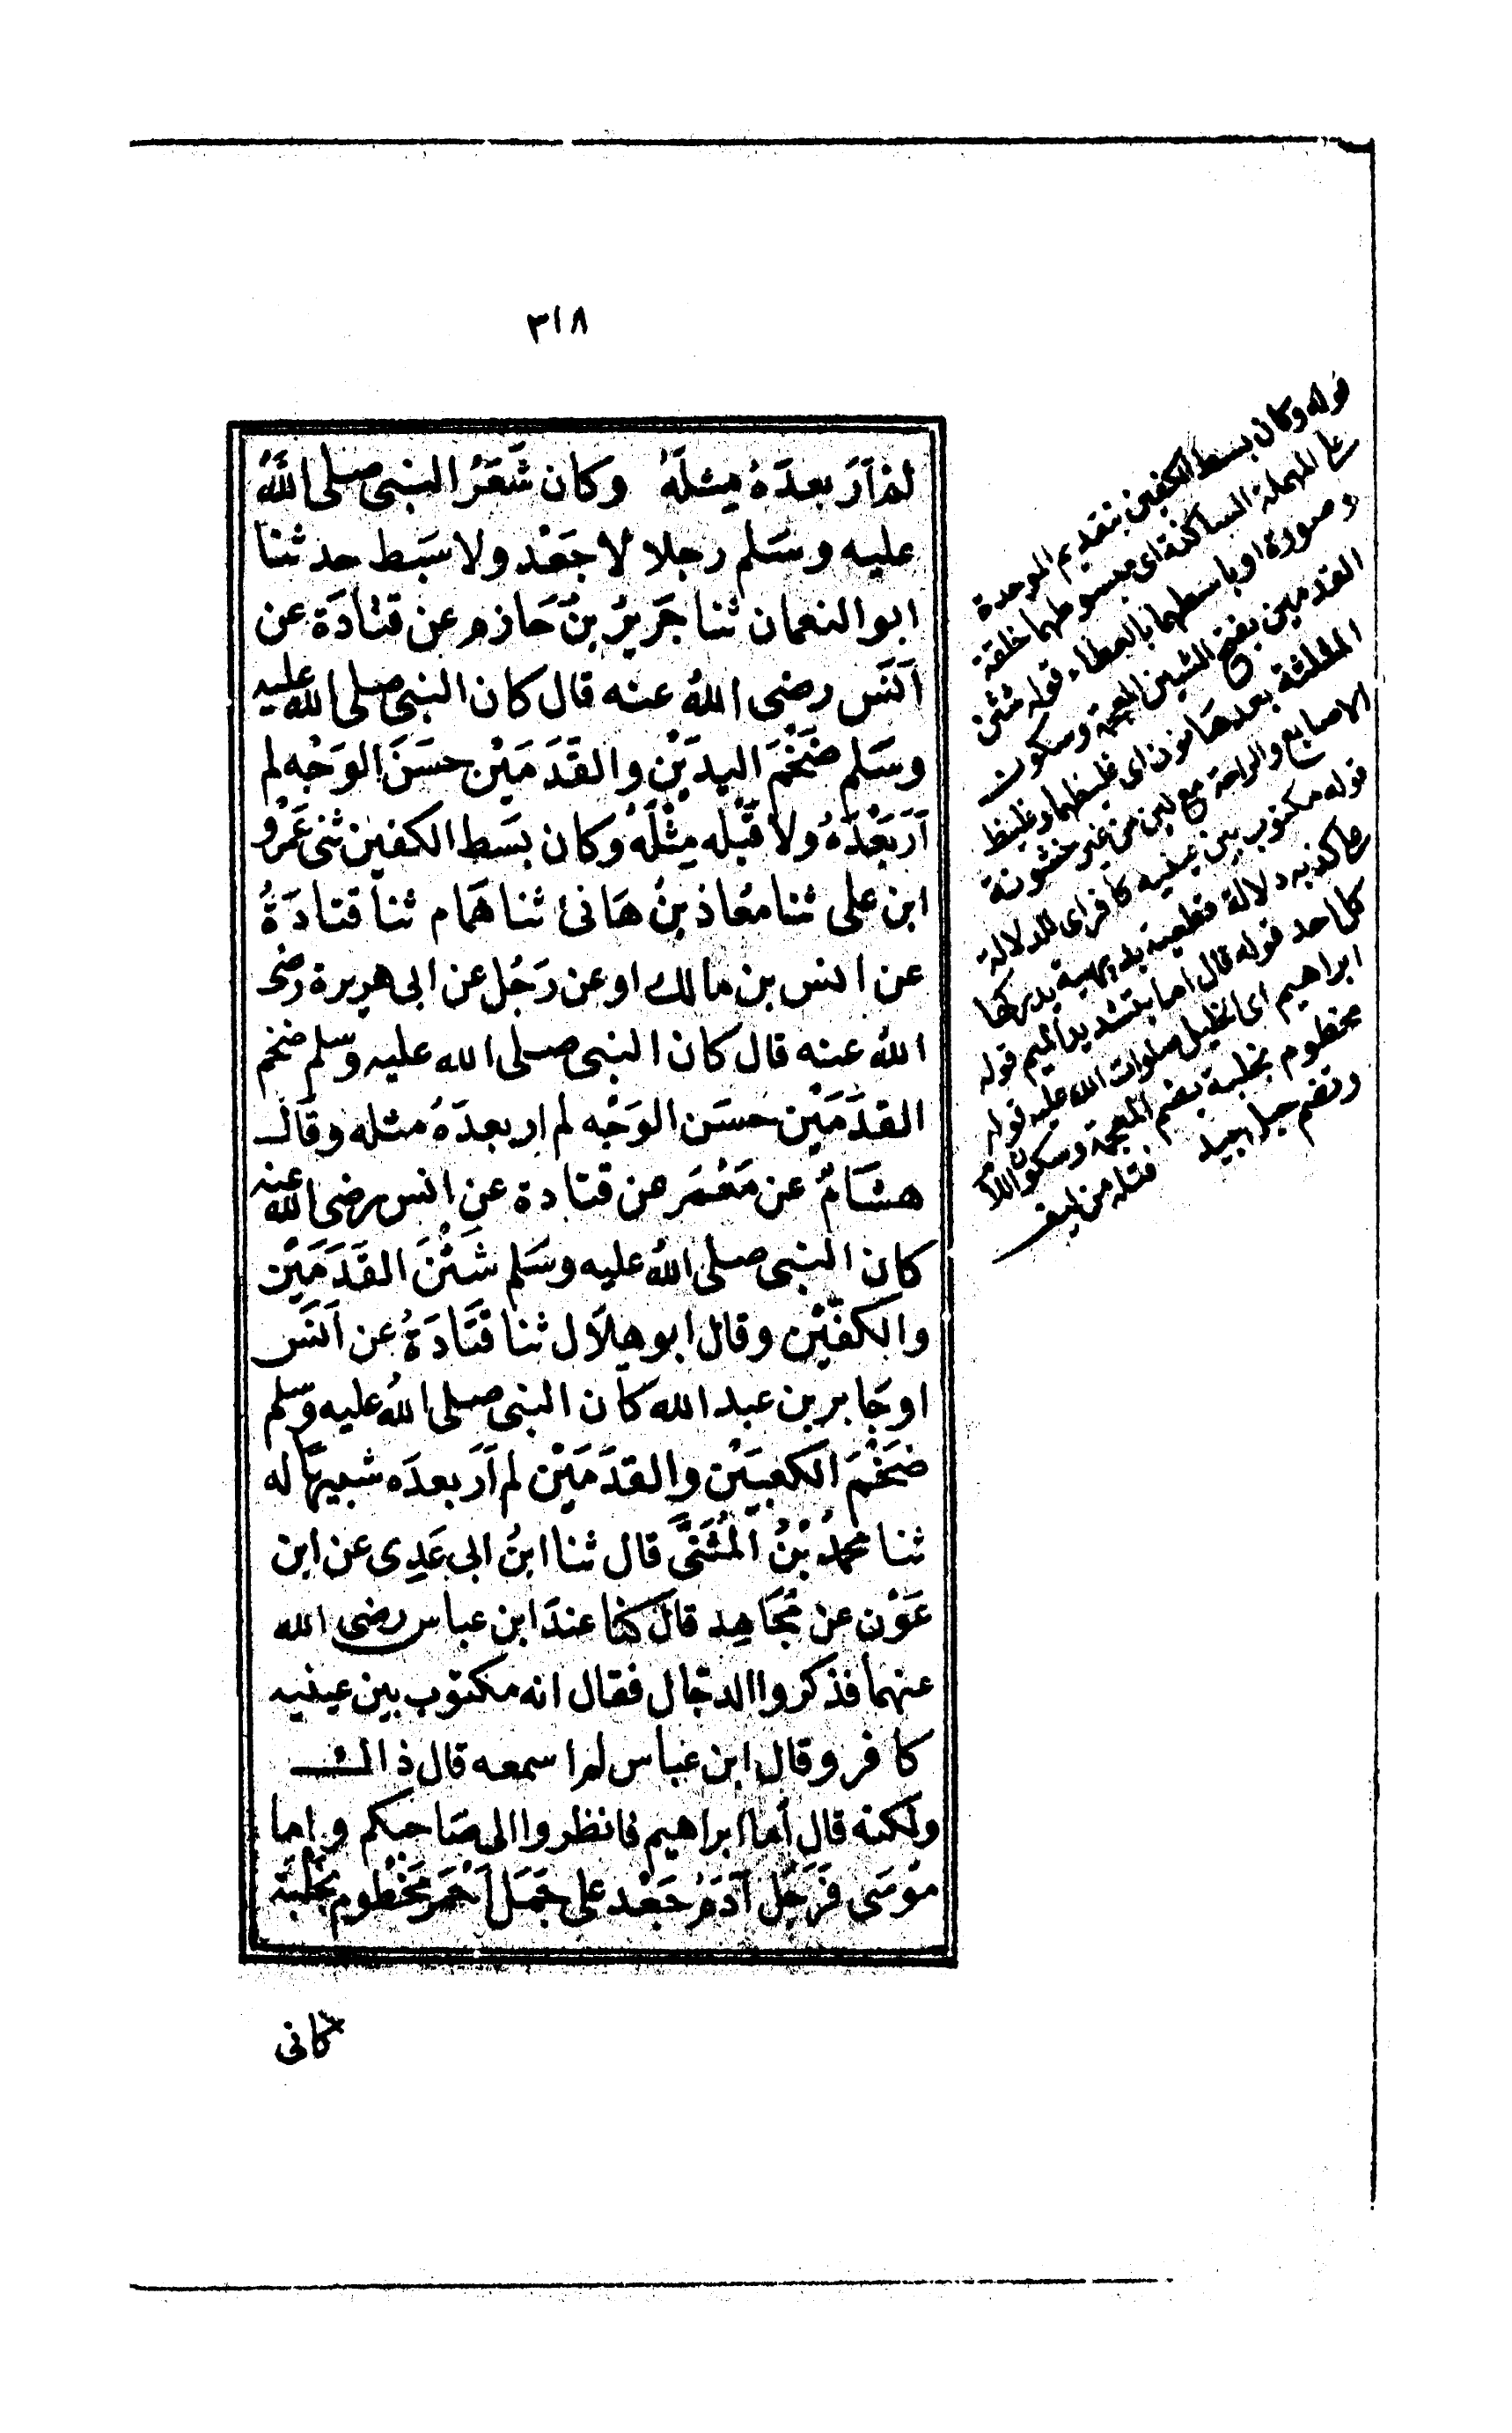 ٣١٨
لم اَرَ بعدَهُ مِثلَهُ وكان شَعَرُ النبى صلى اللهُ
عليه وسَلم رجلا لا جَعْد ولا سَبَط حدثنا
ابو النعمان ثنا جَرِيرُ بنُ حَازم عن قَتَادَة عن
اَنَس رضى اللهُ عنه قال كان النبى صلى الله عليه
وسَلم ضَخْمَ اليدَيْن والقَدَمَيْن حسَنَ الوَجْه لم
اَرَ بَعْدَهُ ولا قَبْله مِثْلَهُ وكان بسَط الكفين ثنى عَمْرو
ابن على ثنا معُاذ بنُ هَانئ ثنا هَمام ثنا قتادَةُ
عن انس بن مالك او عن رَجُل عن ابى هريرة رضى
اللهُ عنه قال كان النبى صلى الله عليه وسلم ضخم
القدَمَيْن حسَن الوَجْه لم ار بعدَهُ مثله وقال
هشَامٌ عن مَعْمَر عن قتادة عن انس رضى الله عنه
كان النبى صلى اللهُ عليه وسَلم شَثْنَ القَدَمَيْن
والكفَّيْن وقال ابو هِلاَل ثنا قَتَادَةُ عن اَنَس
او جَابر بن عبد الله كان النبى صلى اللهُ عليه وسلم
ضَخْمَ الكعبَيْن والقدَمَيْن لم اَرَ بعدَه شبيهًا له
ثنا محمدُ بْنُ المُثَنَّى قال ثنا ابنُ ابى عَدِى عن ابن
عَوْن عن مجَاهِد قال كنا عندَ ابن عباس رضى الله
عنهما فذكروا الدجّال فقال انه مكتوب بين عينيه
كافر وقال ابن عباس لم اسمعه قال ذاك
ولكنه قال أما ابراهيم فانظروا الى صَاحبكم واما
موُسَى فَرَجُل آدَمُ جَعْد على جَمَل اَحْمَر مَخْطُوم بخُلْبَة
كانى
قوله وكان بسط الكفين بتقديم الموحدة
على المهملة الساكنة اى مبسوطهما خلقة
وصورة او باسطهما بالعطاء قوله شثن
القدمين بفتح الشين المعجمة وسكون
المثلثة بعدها نون اى غليظهما وغليظ
الاصابع والراحة مع لين من غير خشونة
قوله مكتوب بين عينيه كافر اى للدلالة
على كذبه دلالة قطعية بديهية يدركها
كل احد قوله قال اما بتشديد الميم قوله
ابراهيم اى الخليل صلوات الله عليه قوله
مخطوم بخلبة بضم المعجمة وسكون اللام
وتضم حبل جيد فتله من ليف